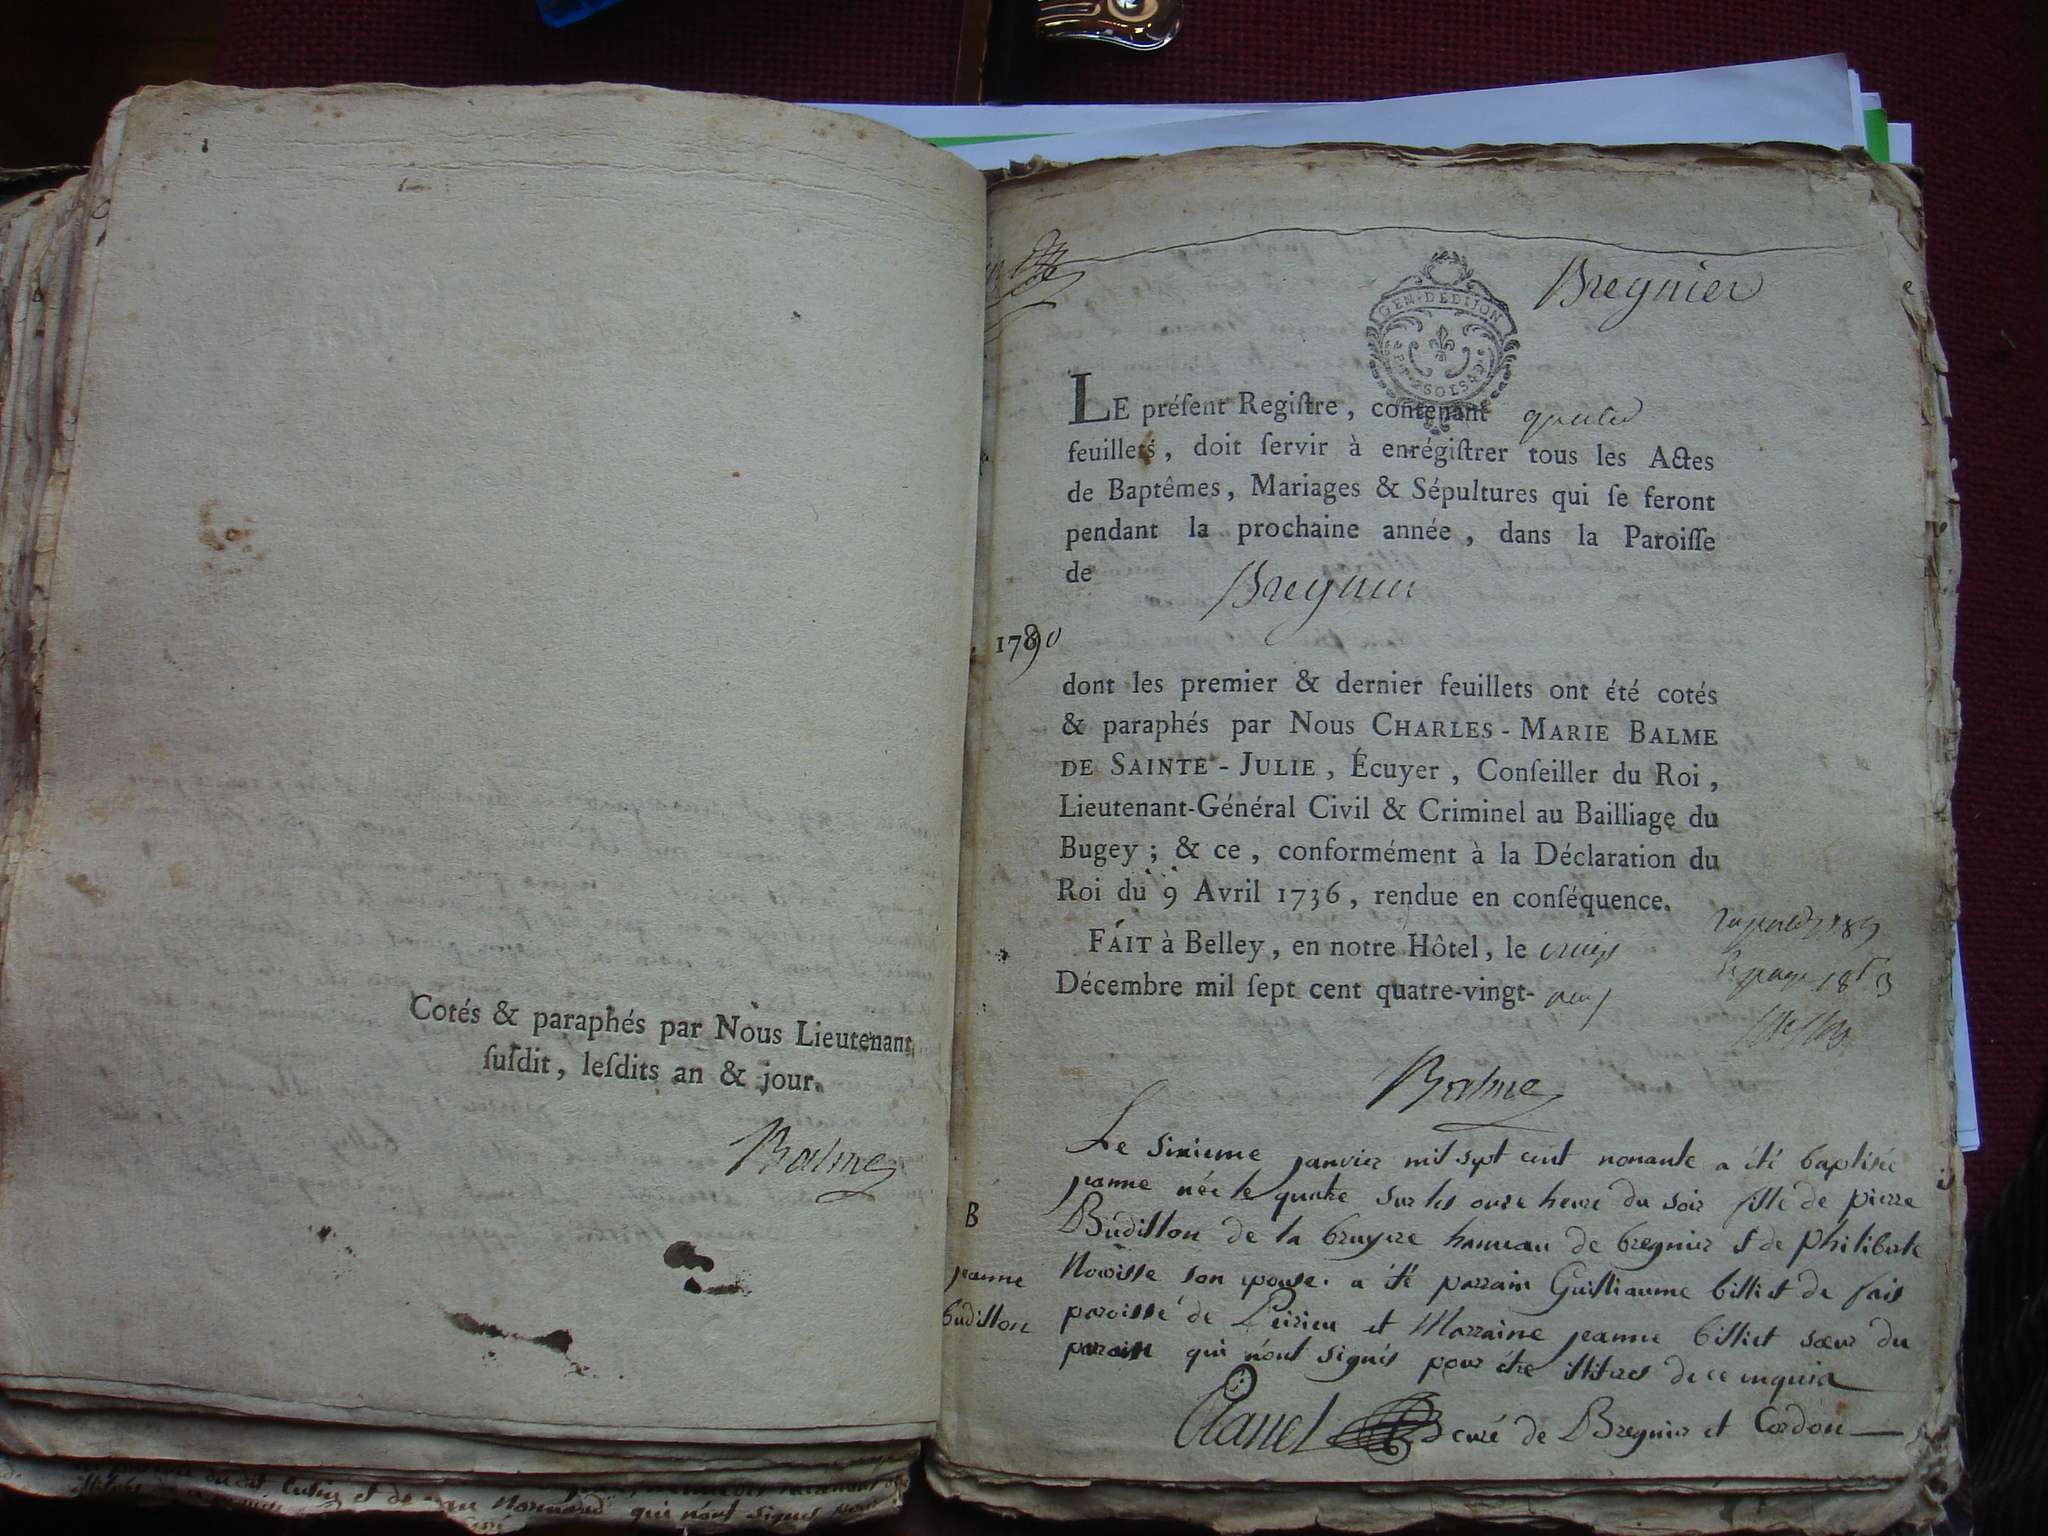 Cotés & paraphés par Nous Lieutenant
ſuſdit, leſdits an & jour.
Balme
Bregnier
GEN·DE DIJON
LE préſent Regiſtre, contenant quatre
feuillets, doit ſervir à enrégiſtrer tous les Actes
de Baptêmes, Mariages & Sépultures qui ſe feront
pendant la prochaine année, dans la Paroiſſe
de Bregnier
1790
dont les premier & dernier feuillets ont été cotés
& paraphés par Nous CHARLES-MARIE BALME
DE SAINTE-JULIE, Écuyer, Conſeiller du Roi,
Lieutenant-Général Civil & Criminel au Bailliage du
Bugey; & ce, conformément à la Déclaration du
Roi du 9 Avril 1736, rendue en conſéquence.
FAIT à Belley, en notre Hôtel, le
Décembre mil ſept cent quatre-vingt-neuf
Balme
Le sixieme janvier mil sept cent nonante a été baptisée
jeanne née le quatre sur les onze heure du soir fille de pierre
B
Budillon de la bruyere hameau de bregnier & de philiberte
jeanne
son epouse. a été parrain Guilliaume billiet de fais
budillon
paroisse de Peirieu et Marraine jeanne billiet sœur du
parain qui n'ont signés pour être illiteres de ce enquis
Clanel curé de Bregnier et Cordon
qui n'ont signés pour